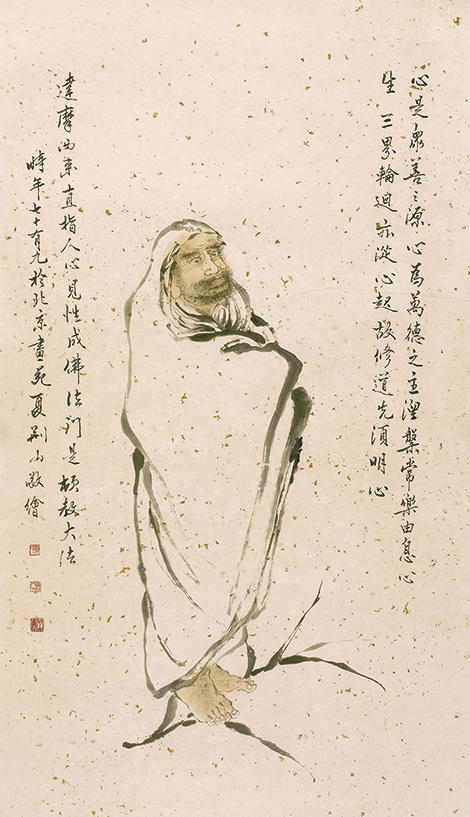 心是眾善之源心為萬德之主涅槃常樂由息心
生三界輪迴亦從心起故修道先須明心
達摩西來直指人心見性成佛法门是頓教大法
時年七十有九於北京畫苑夏荊山敬繪